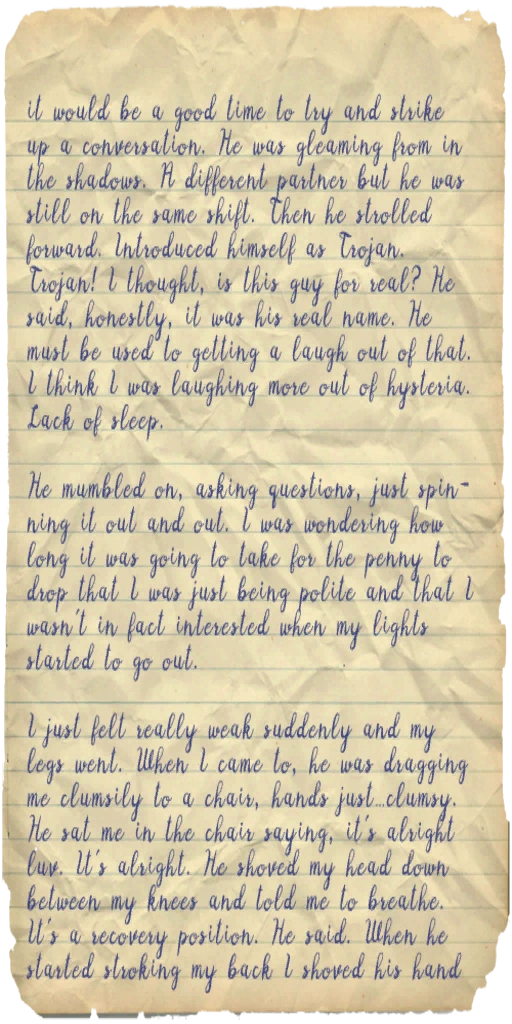 it would be a good time to try and strike
up a conversation. He was gleaming from in
the shadows. A different partner but he was
still on the same shift. Then he strolled
forward. Introduced himself as Trojan.
Trojan! I thought, is this guy for real? He
said, honestly, it was his real name. He
must be used to getting a laugh out of that.
I think I was laughing more out of hysteria.
Lack of sleep.

He mumbled on, asking questions, just spin-
ning it out and out. I was wondering how
long it was going to take for the penny to
drop that I was just being polite and that I
wasn't in fact interested when my lights
started to go out.

I just felt really weak suddenly and my
legs went. When I came to, he was dragging
me clumsily to a chair, hands just...clumsy.
He sat me in the chair saying, it's alright
luv. It's alright. He shoved my head down
between my knees and told me to breathe.
It's a recovery position. He said. When he
started stroking my back I shoved his hand